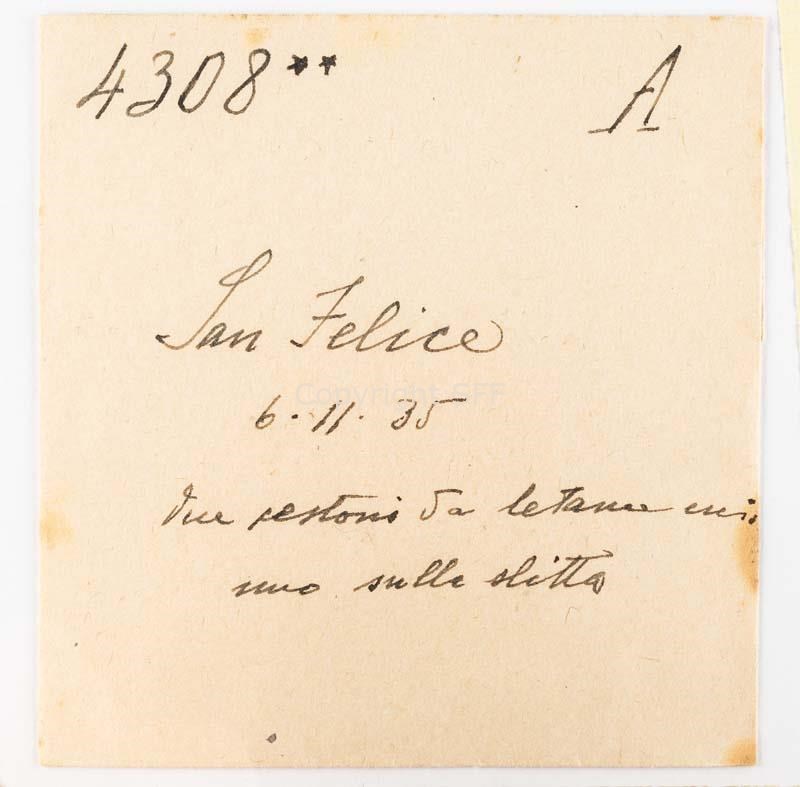 4308** A
San Felice
6·11·35
due cestoni da letame
uno sulla slitta